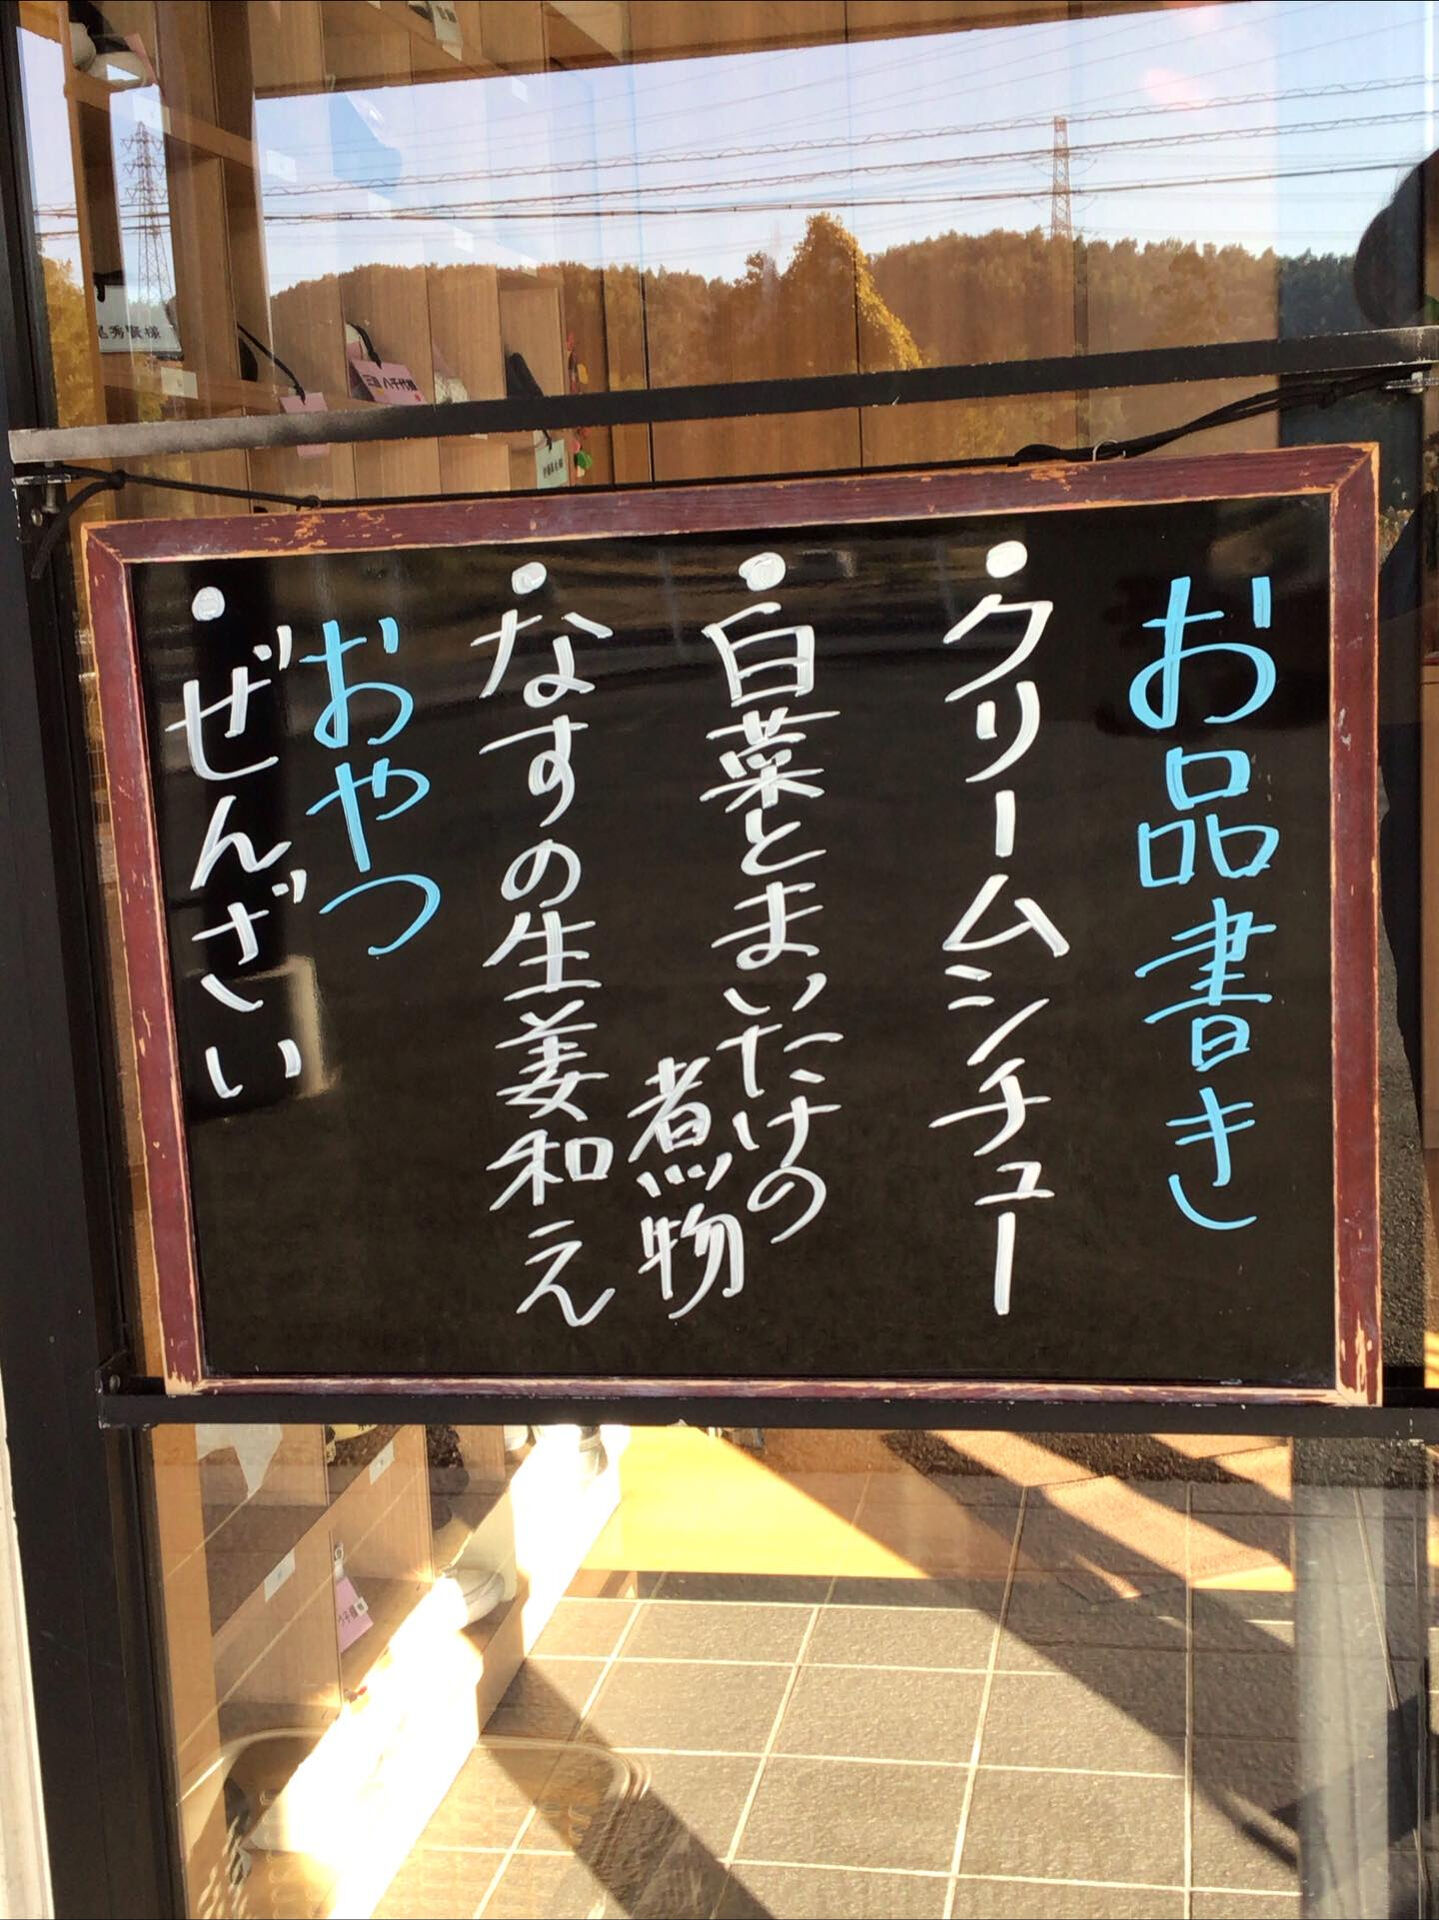 お品書き
●クリームシチュー
●白菜とまいたけの
煮物
●なすの生姜和え
おやつ
●ぜんざい